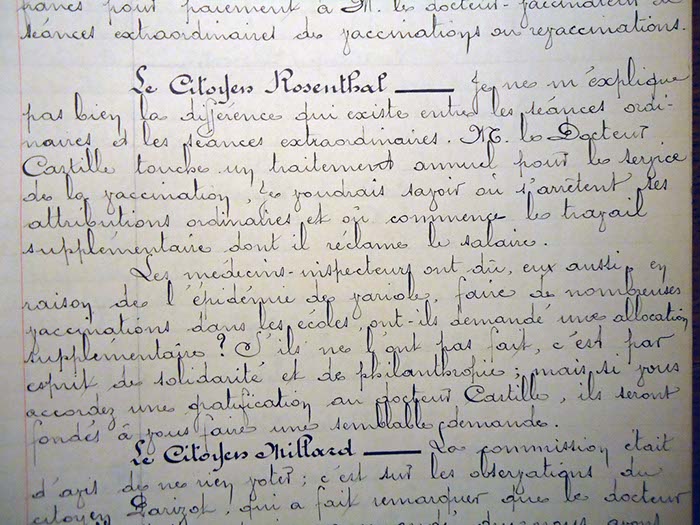 francs pour paiement à M. le docteur-vaccinateur de
séances extraordinaires de vaccinations ou revaccinations.
Le Citoyen Rosenthal — Je ne m'explique
pas bien la différence qui existe entre les séances ordi-
naires et les séances extraordinaires. M. le Docteur
Castille touche un traitement annuel pour le service
de la vaccination, je voudrais savoir où s'arrêtent ses
attributions ordinaires et où commence le travail
supplémentaire dont il réclame le salaire.
Les médecins-inspecteurs ont dû, eux aussi, en
raison de l'épidémie de variole, faire de nombreuses
vaccinations dans les écoles, ont-ils demandé une allocation
supplémentaire ? S'ils ne l'ont pas fait, c'est par
esprit de solidarité et de philanthropie ; mais si vous
accordez une gratification au docteur Castille, ils seront
fondés à vous faire une semblable demande.
Le Citoyen Millard — La commission était
d'avis de ne rien voter ; c'est sur les observations du
citoyen Parizot, qui a fait remarquer que le docteur